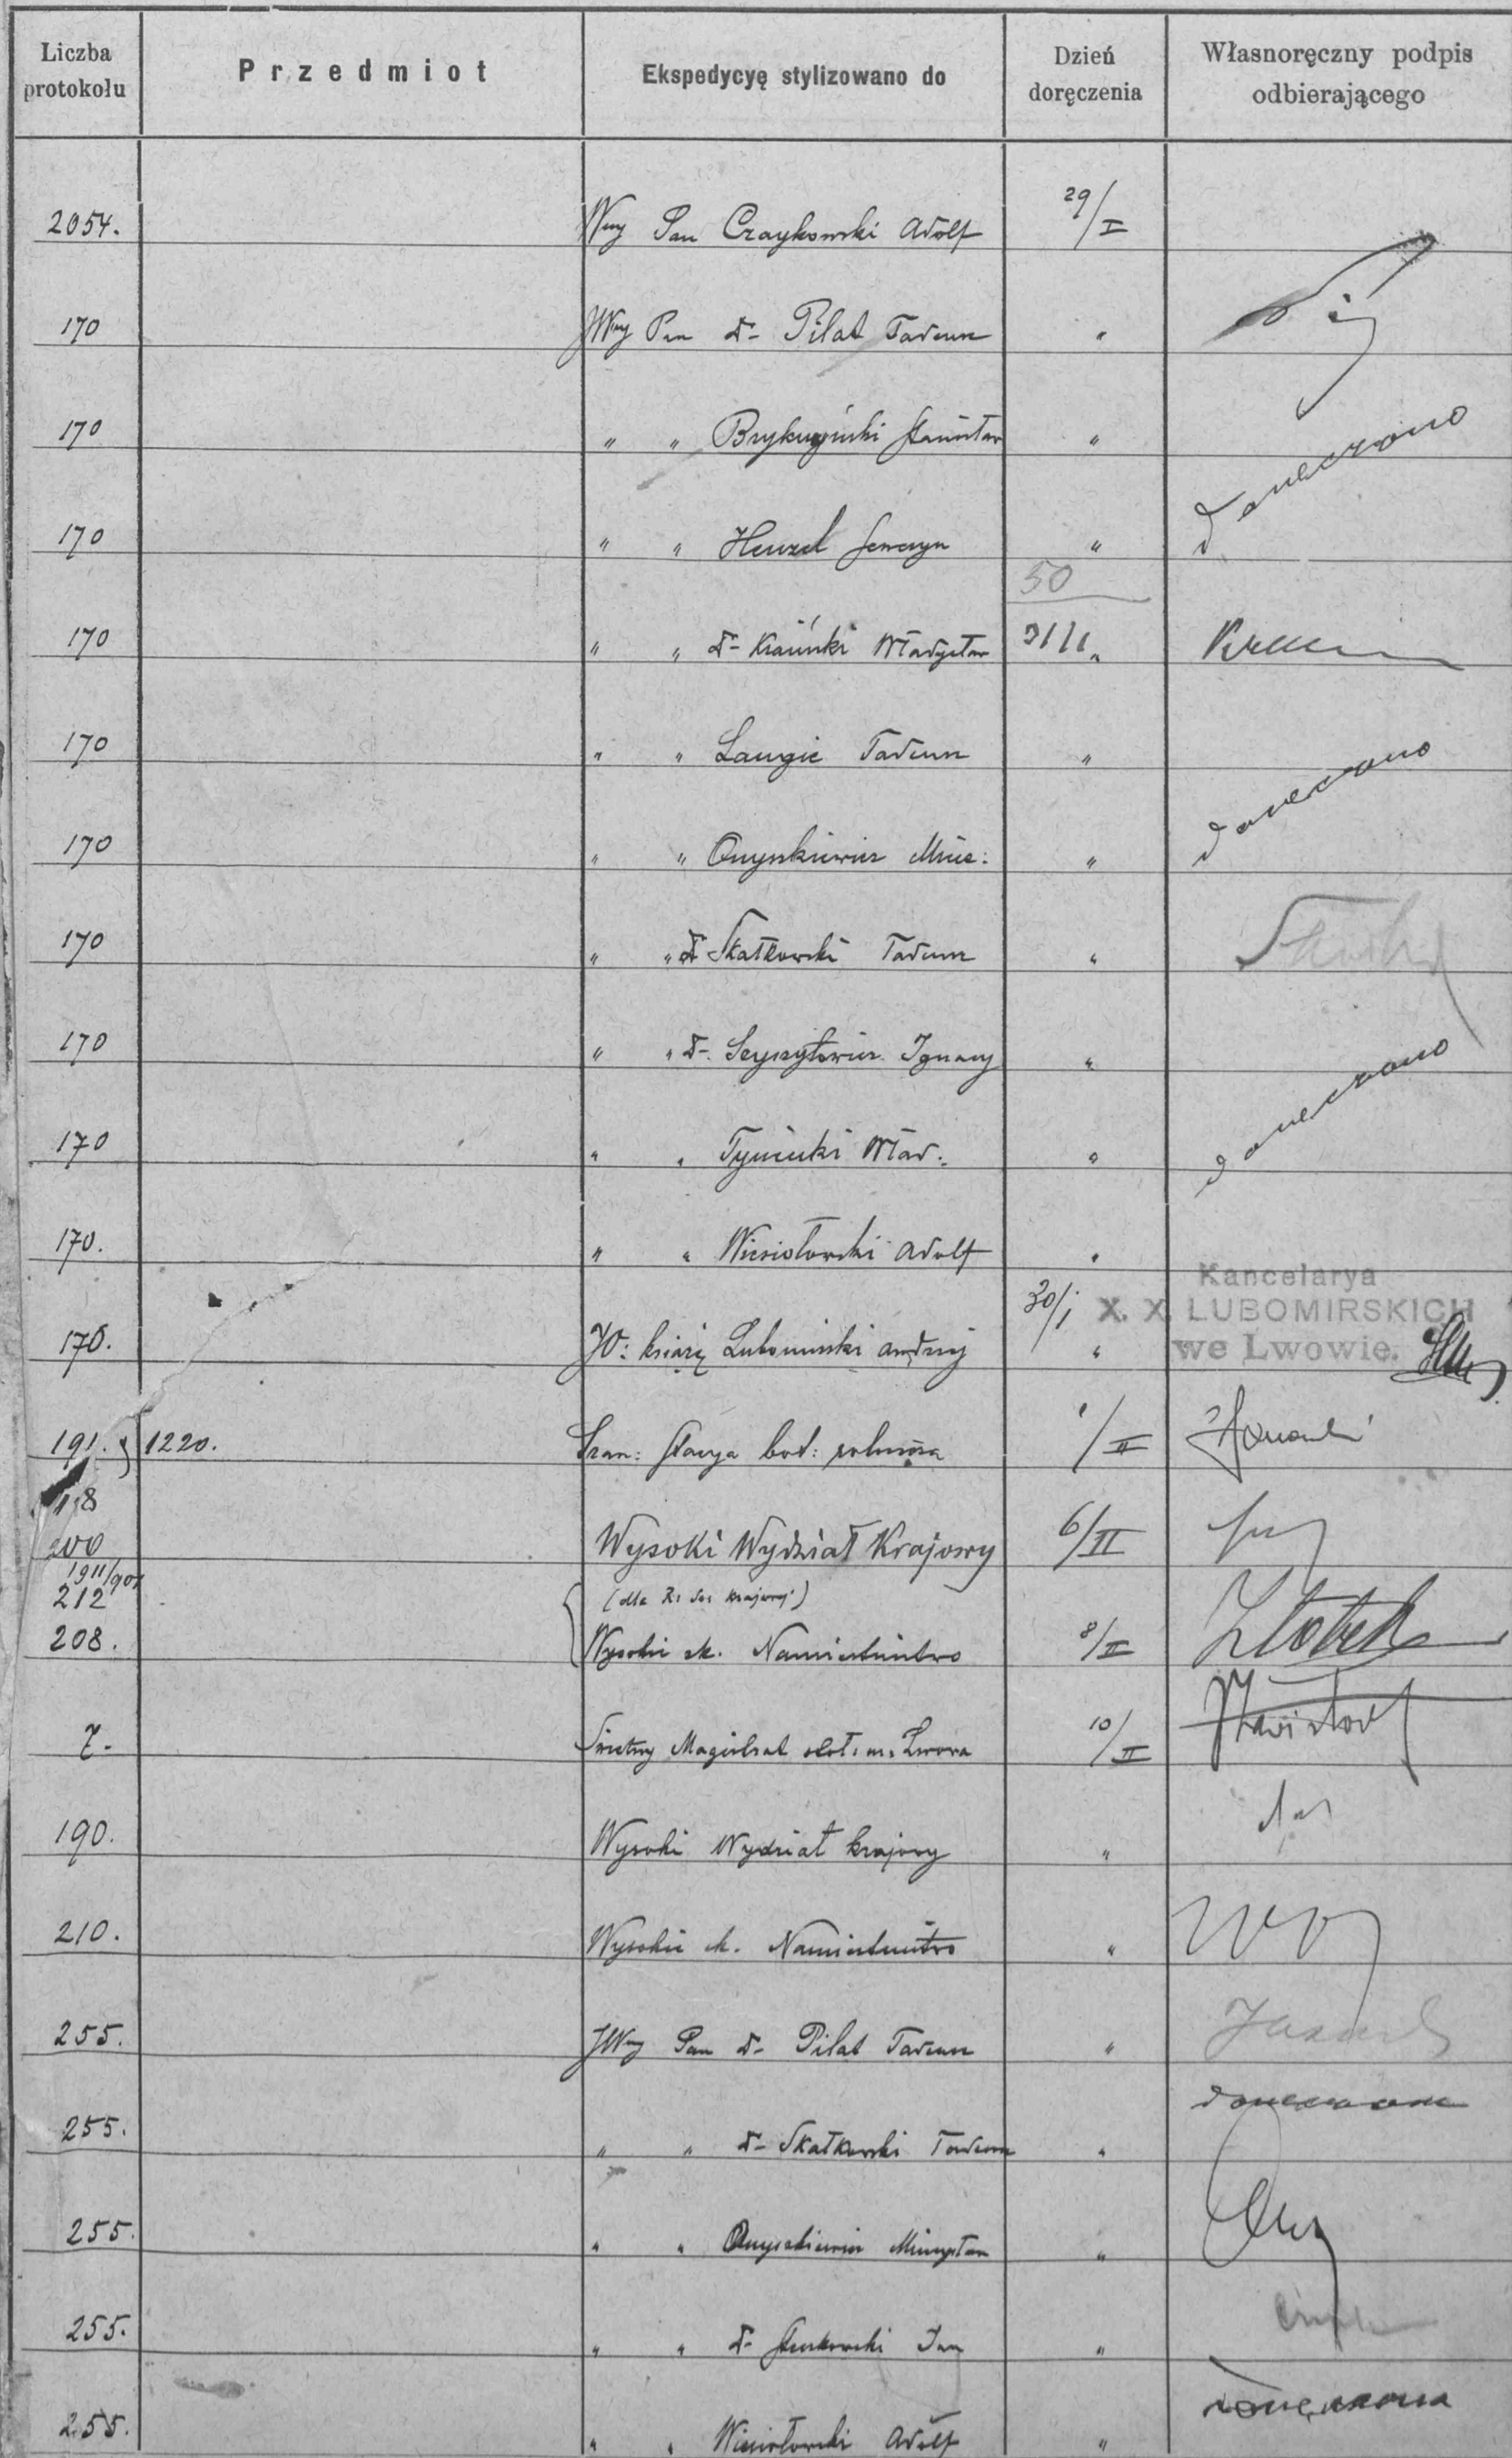 Liczba protokołu Przedmiot Ekspedycyę stylizowano do Dzień doręczenia Własnoręczny podpis odbierającego
2054. Wny Pan Czaykowski Adolf 29/I
170 JWny Pan Dr Pilat Tadeusz "
170 " " Brykczyński Stanisław " doręczono
170 " " Henzel Seweryn "
50
170 " " Dr Kraiński Władysław 31/1 "
170 " " Langie Tadeusz " doręczono
170 " " Onyszkiewicz Miec: "
170 " " Dr Skałkowski Tadeusz "
170 " " Dr. Szyszyłowicz Ignacy " doręczono
170 " " Tyniecki Wład: "
170. " " Wiesiołowski Adolf "
Kancelarya
30/1 X. X. LUBOMIRSKICH
170. JO: książę Lubomirski Andrzej " we Lwowie.
191. } 1220. Szan: Stacya bot: rolnicza 1/II
198
200 Wysoki Wydział Krajowy 6/II
1911/901
212 (dla krajowej)
208. Wysokie ck. Namiestnictwo 8/II
7. Świetny Magistrat stoł. m. Lwowa 10/II
190. Wysoki Wydział krajowy "
210. Wysokie ck. Namiestnictwo "
255. JWny Pan Dr Pilat Tadeusz "
doręczono
255. " " Dr Skałkowski Tadeusz "
255. " " Onyszkiewicz Mieczysław "
255. " " Dr Jan "
doręczono
255. " " Wiesiołowski Adolf "